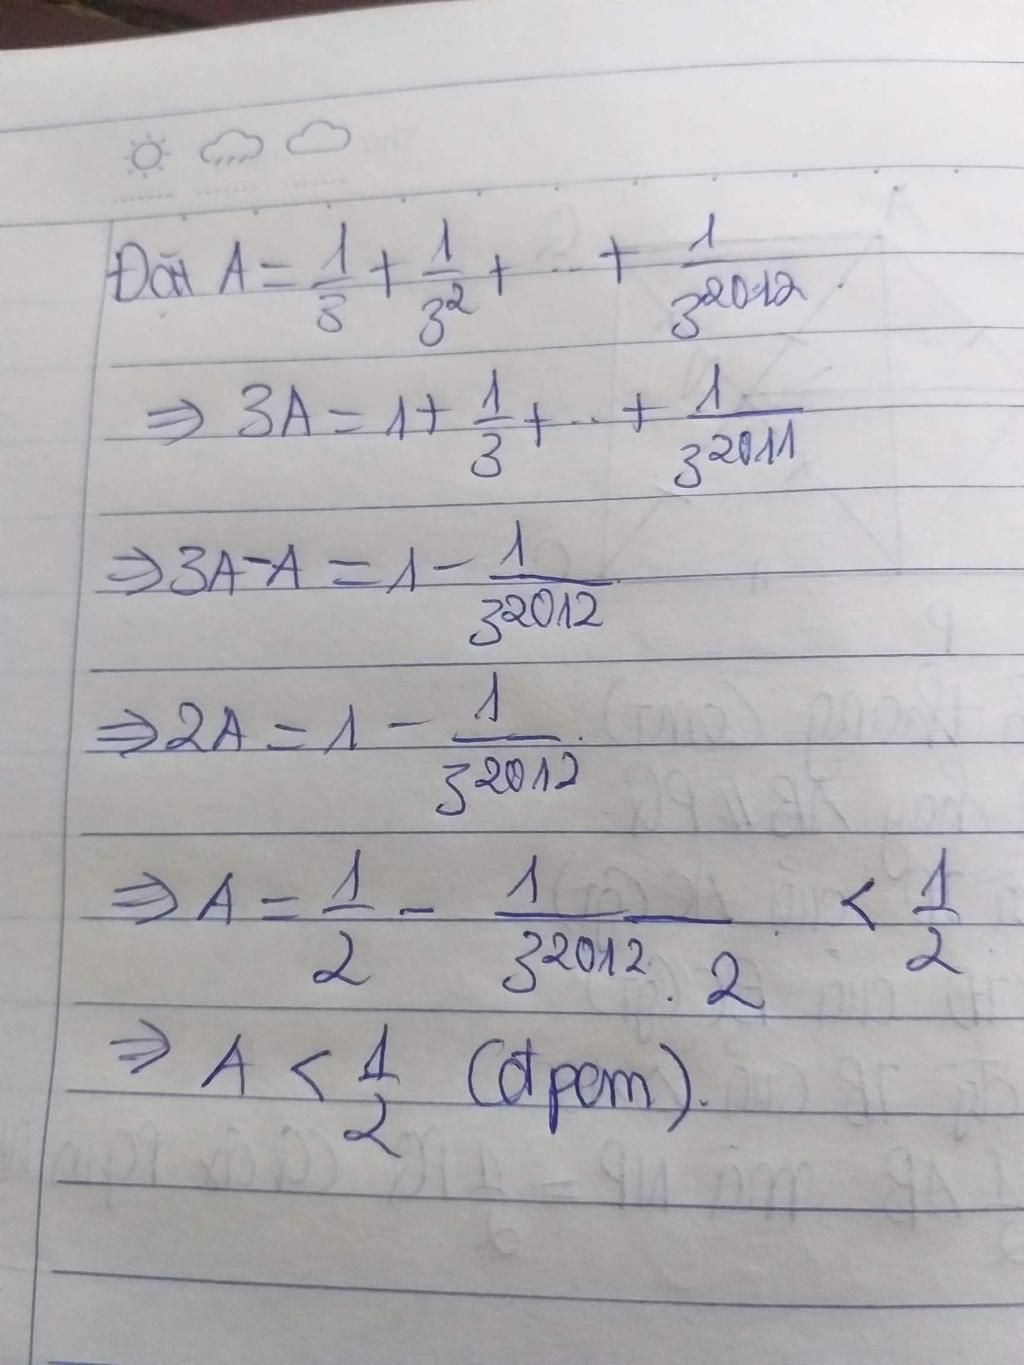 Đặt A = 1/3 + 1/3^2 + ... + 1/3^2012.
⇒ 3A = 1 + 1/3 + ... + 1/3^2011
⇒ 3A - A = 1 - 1/3^2012
⇒ 2A = 1 - 1/3^2012.
⇒ A = 1/2 - 1/(3^2012 . 2) < 1/2
⇒ A < 1/2 (đpcm).